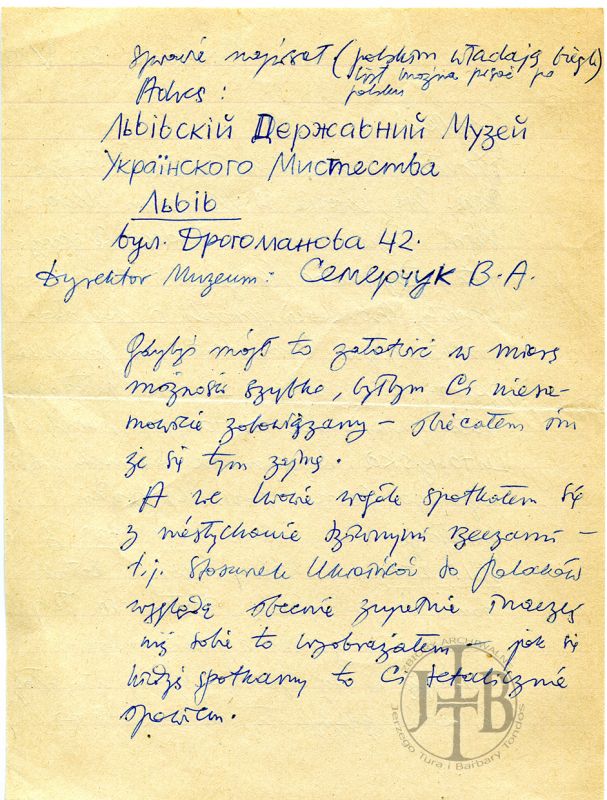 sprawie napisał (polskim władają biegle
list można pisać po
polsku
Adres:
Львівскій Державний Музей
Українского Мистества
Львів
вул. Драгоманова 42.
Dyrektor Muzeum: Семерчук В.А.
Gdybyś mógł to załatwić w miarę
możności szybko, byłbym Ci niesa-
mowicie zobowiązany – obiecałem im
że się tym zajmę.
A we Lwowie wogóle spotkałem się
z niesłychanie dziwnymi rzeczami –
t.j. stosunek Ukraińców do Polaków
wygląda obecnie zupełnie inaczej
niż sobie to wyobrażałem – jak się
kiedyś spotkamy to Ci
opowiem.
ARCHIWALN
JTB
Jerzego Tura i Barbary Tondos